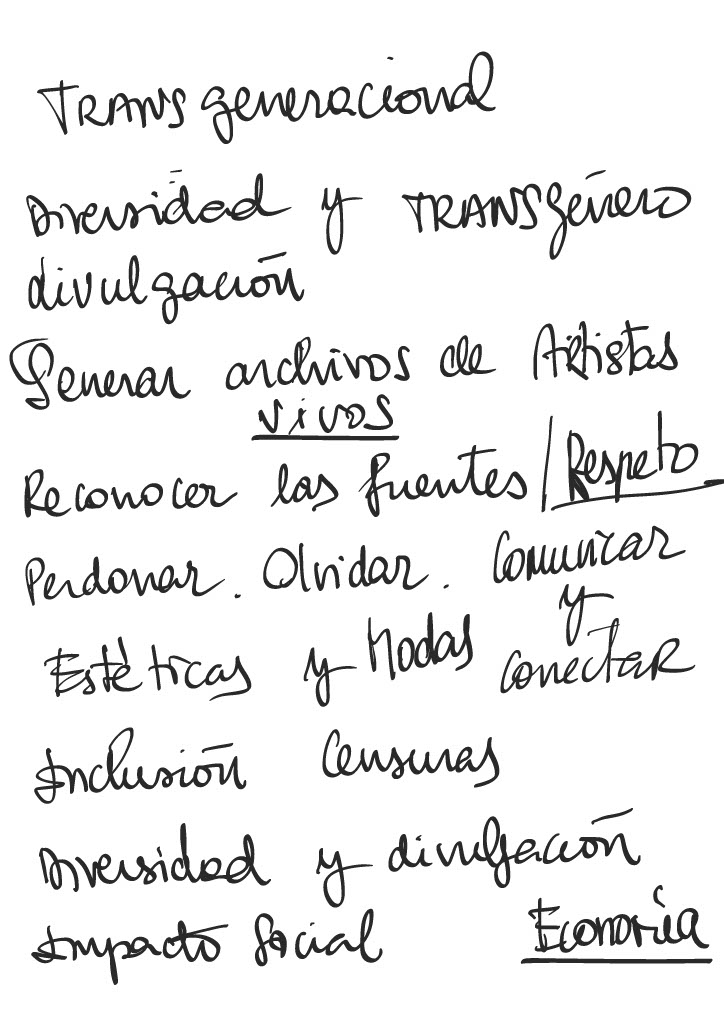 TRANSgeneracional
Diversidad y TRANSgénero
divulgación
Generar archivos de Artistas
vivos
Reconocer las fuentes / Respeto
Perdonar. Olvidar. Comunicar
y
Estéticas y Modas conectar
Inclusión Censuras
Diversidad y divulgación
Impacto Social Economía